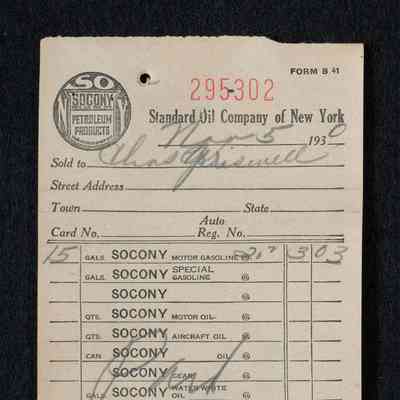 FORM B 41
SO
SOCONY
PETROLEUM
PRODUCTS
295302
Standard Oil Company of New York
Nov 5 1930
Sold to Chas Griswell
Street Address
Town State
Auto
Card No. Reg. No.
15 GALS. SOCONY MOTOR GASOLINE @ 20² 3 03
GALS. SOCONY SPECIAL GASOLINE @
SOCONY
QTS. SOCONY MOTOR OIL @
QTS. SOCONY AIRCRAFT OIL @
CAN SOCONY OIL @
SOCONY GEAR @
GALS. SOCONY WATER WHITE OIL @